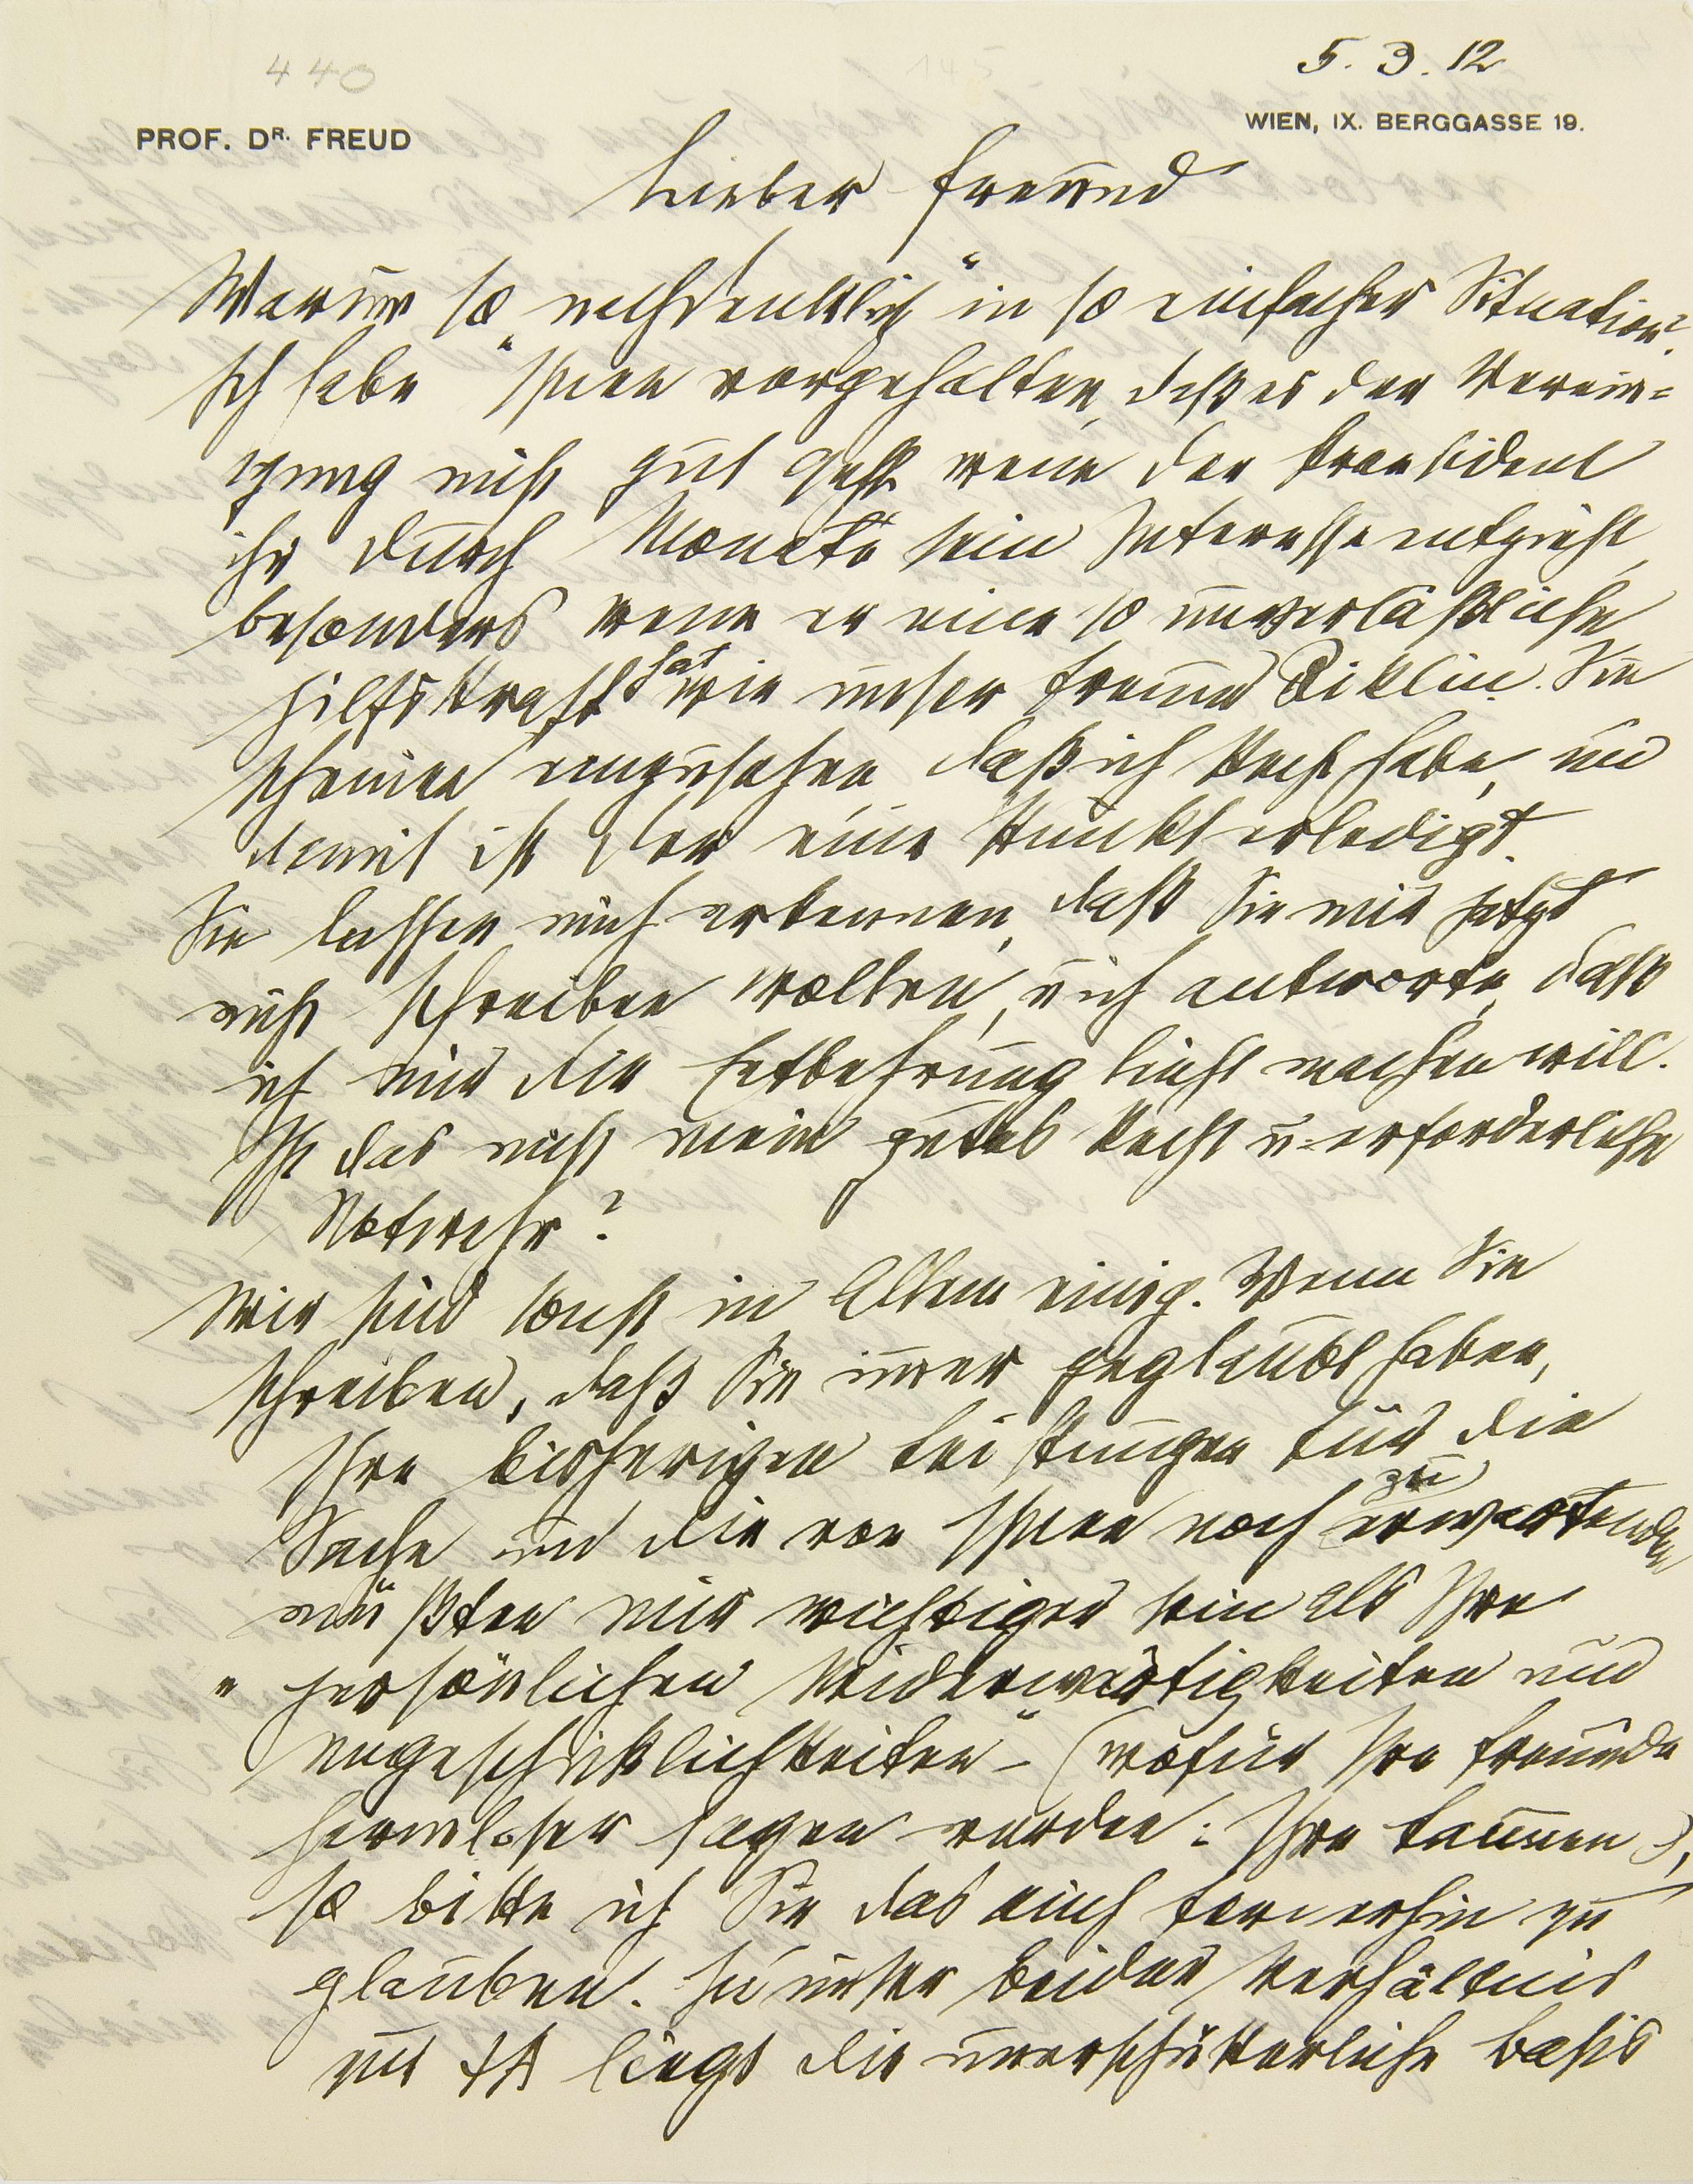 440
5. 3. 12
PROF. DR. FREUD
WIEN, IX. BERGGASSE 19.
Lieber Freund
Warum so „nachdenklich“ in so einfacher Situation?
Ich habe Ihnen vorgehalten, daß es der Verein-
igung nicht gut geht wenn der Praesident
ihr durch Monate sein Interesse entzieht,
besonders wenn er eine so unverläßliche
Hilfskraft hat wie unser Freund Riklin. Sie
scheinen einzusehen, daß ich Recht habe, und
damit ist der eine Punkt erledigt.
Sie lassen mich erkennen, daß Sie mir jetzt
nicht schreiben wollen, u ich antworte, daß
ich mir die Entbehrung leicht machen will.
Ist das nicht mein gutes Recht u erforderliche
Notwehr?
Wir sind sonst in Allem einig. Wenn Sie
schreiben, daß Sie immer geglaubt haben,
Ihre bisherigen Leistungen für die
Sache und die von Ihnen noch zu erwartenden
müßten mir wichtiger sein als Ihre
„persönlichen Widerwärtigkeiten und
Ungeschicklichkeiten“ – (wofür Ihre Freunde
harmloser sagen würden: Ihre Launen),
so bitte ich Sie das auch fernerhin zu
glauben. In unser beider Verhältnis
mit ΨA liegt die unerschütterliche Basis